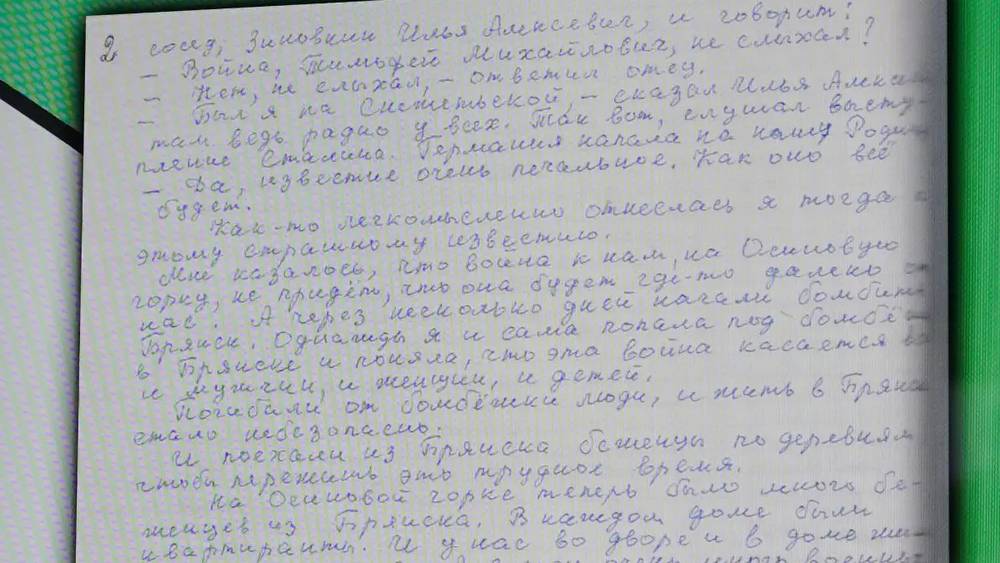 2.
сосед, Зиновкин Илья Алексеевич, и говорит:
– Война, Тимофей Михайлович, не слыхал?
– Нет, не слыхал, – ответил отец.
– Был я на Снежетьской, – сказал Илья
там ведь радио у всех. Так вот, слушал высту-
пление Сталина. Германия напала на нашу
– Да, известие очень печальное. Как оно всё
будет.
Как-то легкомысленно отнеслась я тогда
этому страшному известию.
Мне казалось, что война к нам, на Осиновую
горку, не придёт, что она будет где-то далеко
нас. А через несколько дней начали
Брянск. Однажды я и сама попала под
в Брянске и поняла, что эта война касается
и мужчин, и женщин, и детей.
Погибали от бомбёжки люди, и жить в
стало небезопасно.
И поехали из Брянска беженцы по деревням
чтобы пережить это трудное время.
На Осиновой горке теперь было много бе-
женцев из Брянска. В каждом доме были
квартиранты. И у нас во дворе и в доме